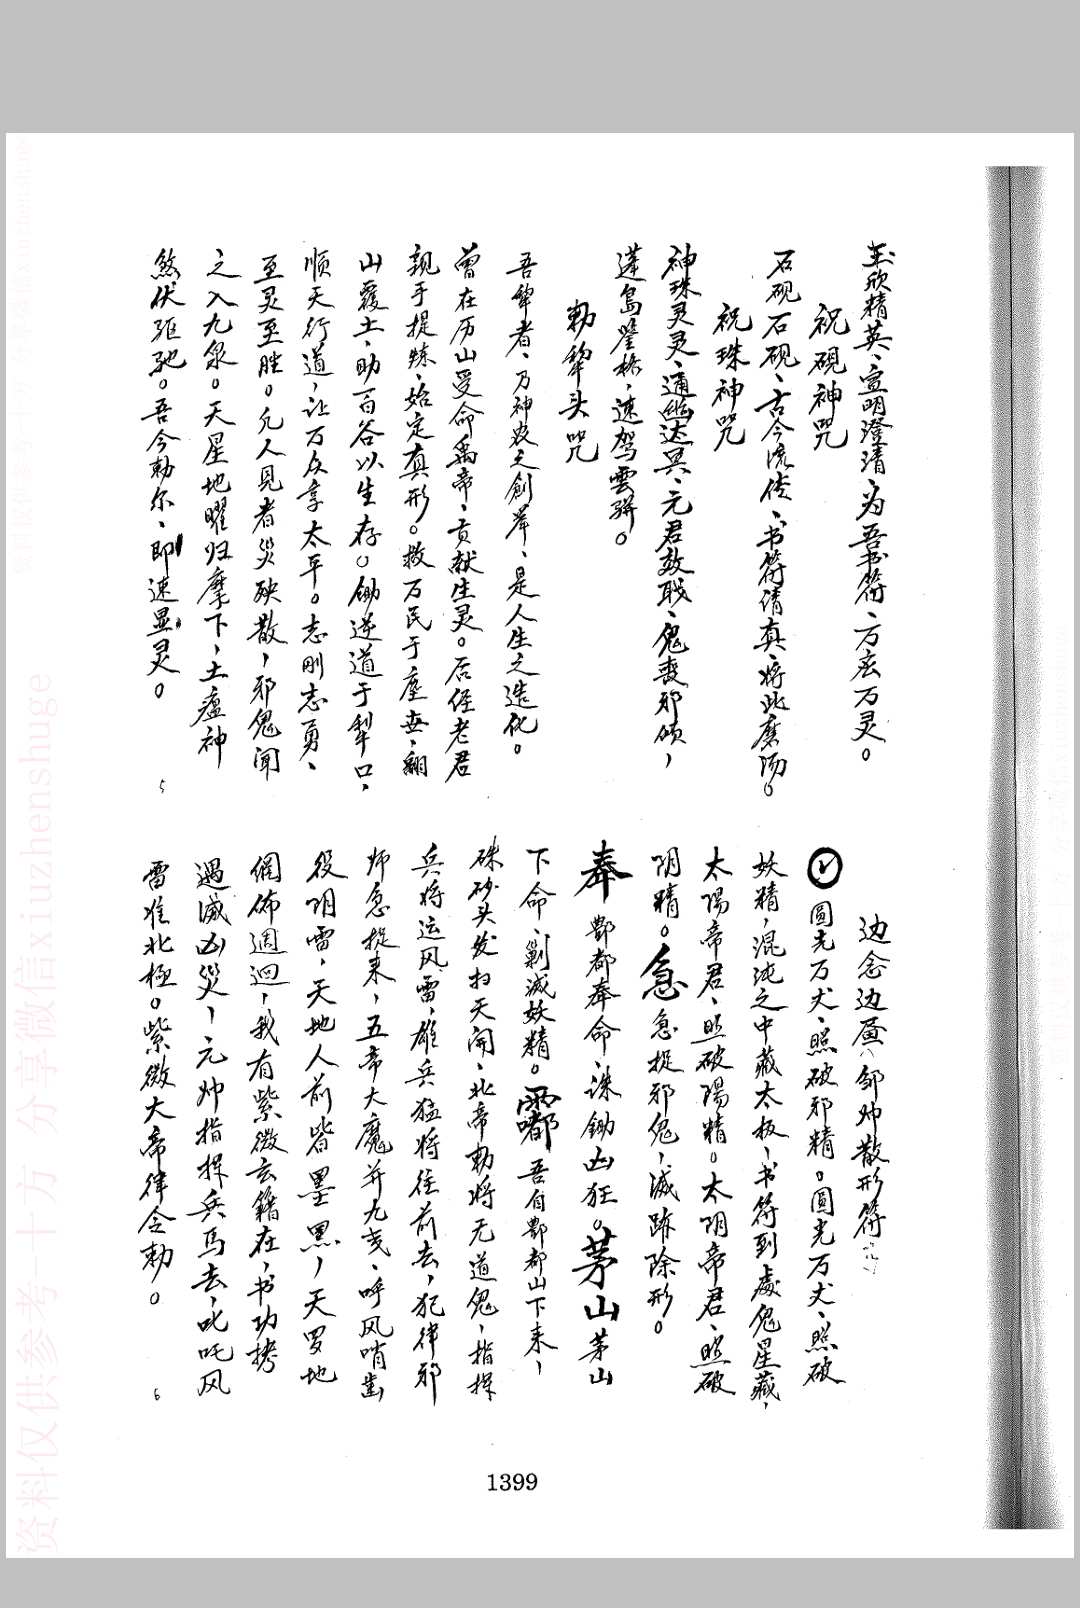 玉欣精英、宣明澄清、为吾书符、方玄万灵。
祝砚神咒
石砚石砚、古今流传、书符清真、将此麾汤。
祝珠神咒
神珠灵灵、通幽达冥、元君效职、鬼丧邪倾，
蓬岛鉴格、速驾雲骈。
勅犂头咒
吾犂者、乃神农之創举、是人生之造化。
曾在历山受命禹帝、贡献生灵。后侄老君
親于提炼、始定真形。救万民于塵世、翻
山覆土、助百谷以生存。锄逆道于犁口、
顺天行道，让万众享太平。志刚志勇、
至灵至胜。凡人見者災殃散，邪鬼闻
之入九泉。天星地曜归麾下，土瘟神
煞伏驱驰。吾今勅尔、即速显灵。
5
边念边画邹帅散形符
圓光万丈、照破邪精。圓光万丈、照破
妖精，混沌之中藏太极、书符到處鬼星藏，
太陽帝君、照破陽精。太阴帝君、照破
阴精。急急捉邪鬼，滅跡除形。
奉酆都奉命、誅鋤凶狂。茅山茅山
下命、剿滅妖精。吾自酆都山下来，
硃砂头发扫天開、北帝勅将无道鬼，指揮
兵将运风雷，雄兵猛将往前去，犯律邪
师急捉来，五帝大魔并九戋、呼风哨齒
役阴雷，天地人前皆墨黑，天罗地
網佈週迴，我有紫微玄籍在，书功拷
遇滅凶災，元帅指揮兵马去，叱吒风
雷准北極。紫微大帝律令勅。
6
1399
资料仅供参考 十方 分享微信xiuzhenshuge